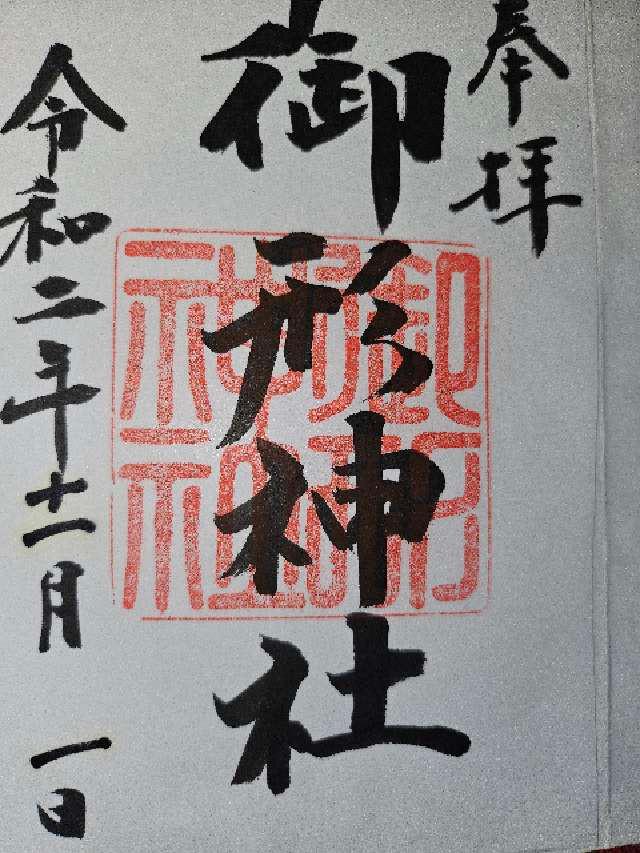 奉拝
御形神社
御形神社
令和二年十一月 一日